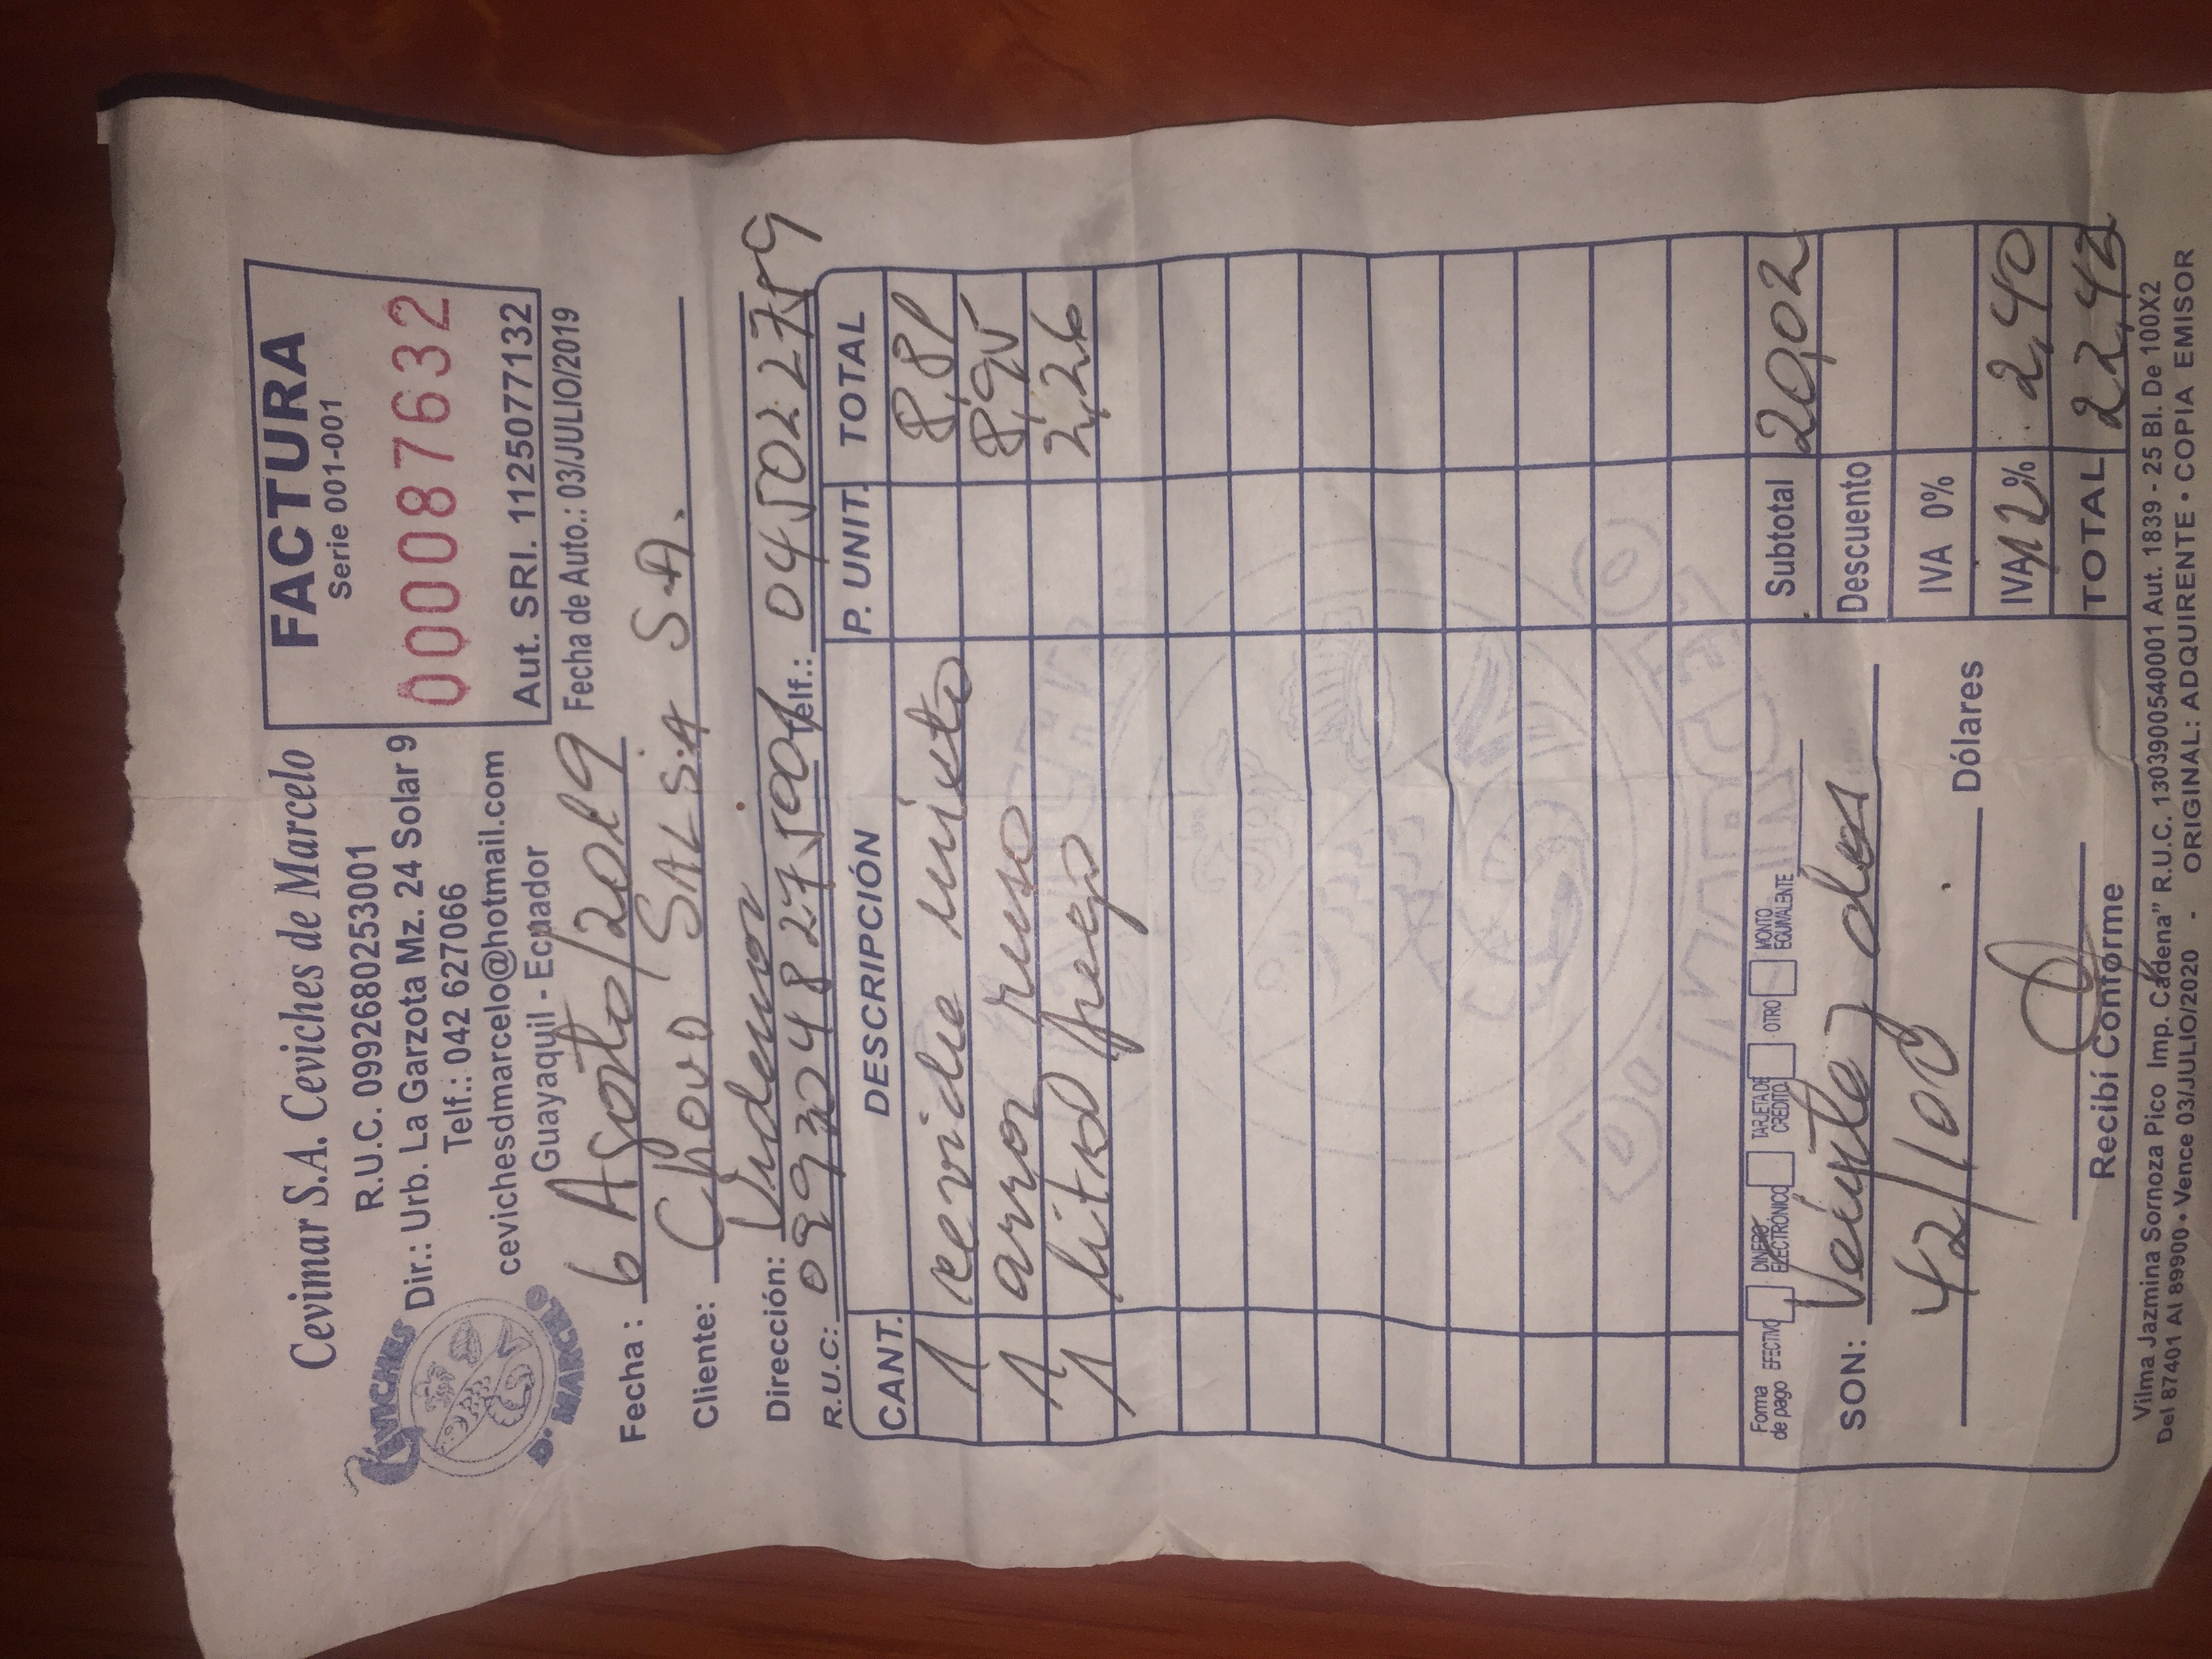 Cevimar S.A. Ceviches de Marcelo
R.U.C. 0992680253001
Dir.: Urb. La Garzota Mz. 24 Solar 9
Telf.: 042 627066
cevichesdmarcelo@hotmail.com
Guayaquil - Ecuador
CEVICHES
D' MARCELO
FACTURA
Serie 001-001
000087632
Aut. SRI. 1125077132
Fecha de Auto.: 03/JULIO/2019
Fecha : 6 Agosto/2019
Cliente: Chovo SALSA S.A.
Dirección:
R.U.C: 0993048275001 Telf.: 045022759
CANT. DESCRIPCIÓN P. UNIT. TOTAL
1 ceviche mixto 8,81
1 arroz ruso 8,95
1 litro fuego 2,26
Forma de pago EFECTIVO DINERO ELECTRÓNICO TARJETA DE CRÉDITO OTRO MONTO EQUIVALENTE
Subtotal 20,02
SON: Veinte y dos
Descuento
42/100 Dólares
IVA 0%
IVA 12% 2,40
TOTAL 22,42
Recibí Conforme
Vilma Jazmina Sornoza Pico Imp. Cadena" R.U.C. 1303900540001 Aut. 1839 - 25 Bl. De 100X2
Del 87401 Al 89900 • Vence 03/JULIO/2020 - ORIGINAL: ADQUIRENTE • COPIA EMISOR